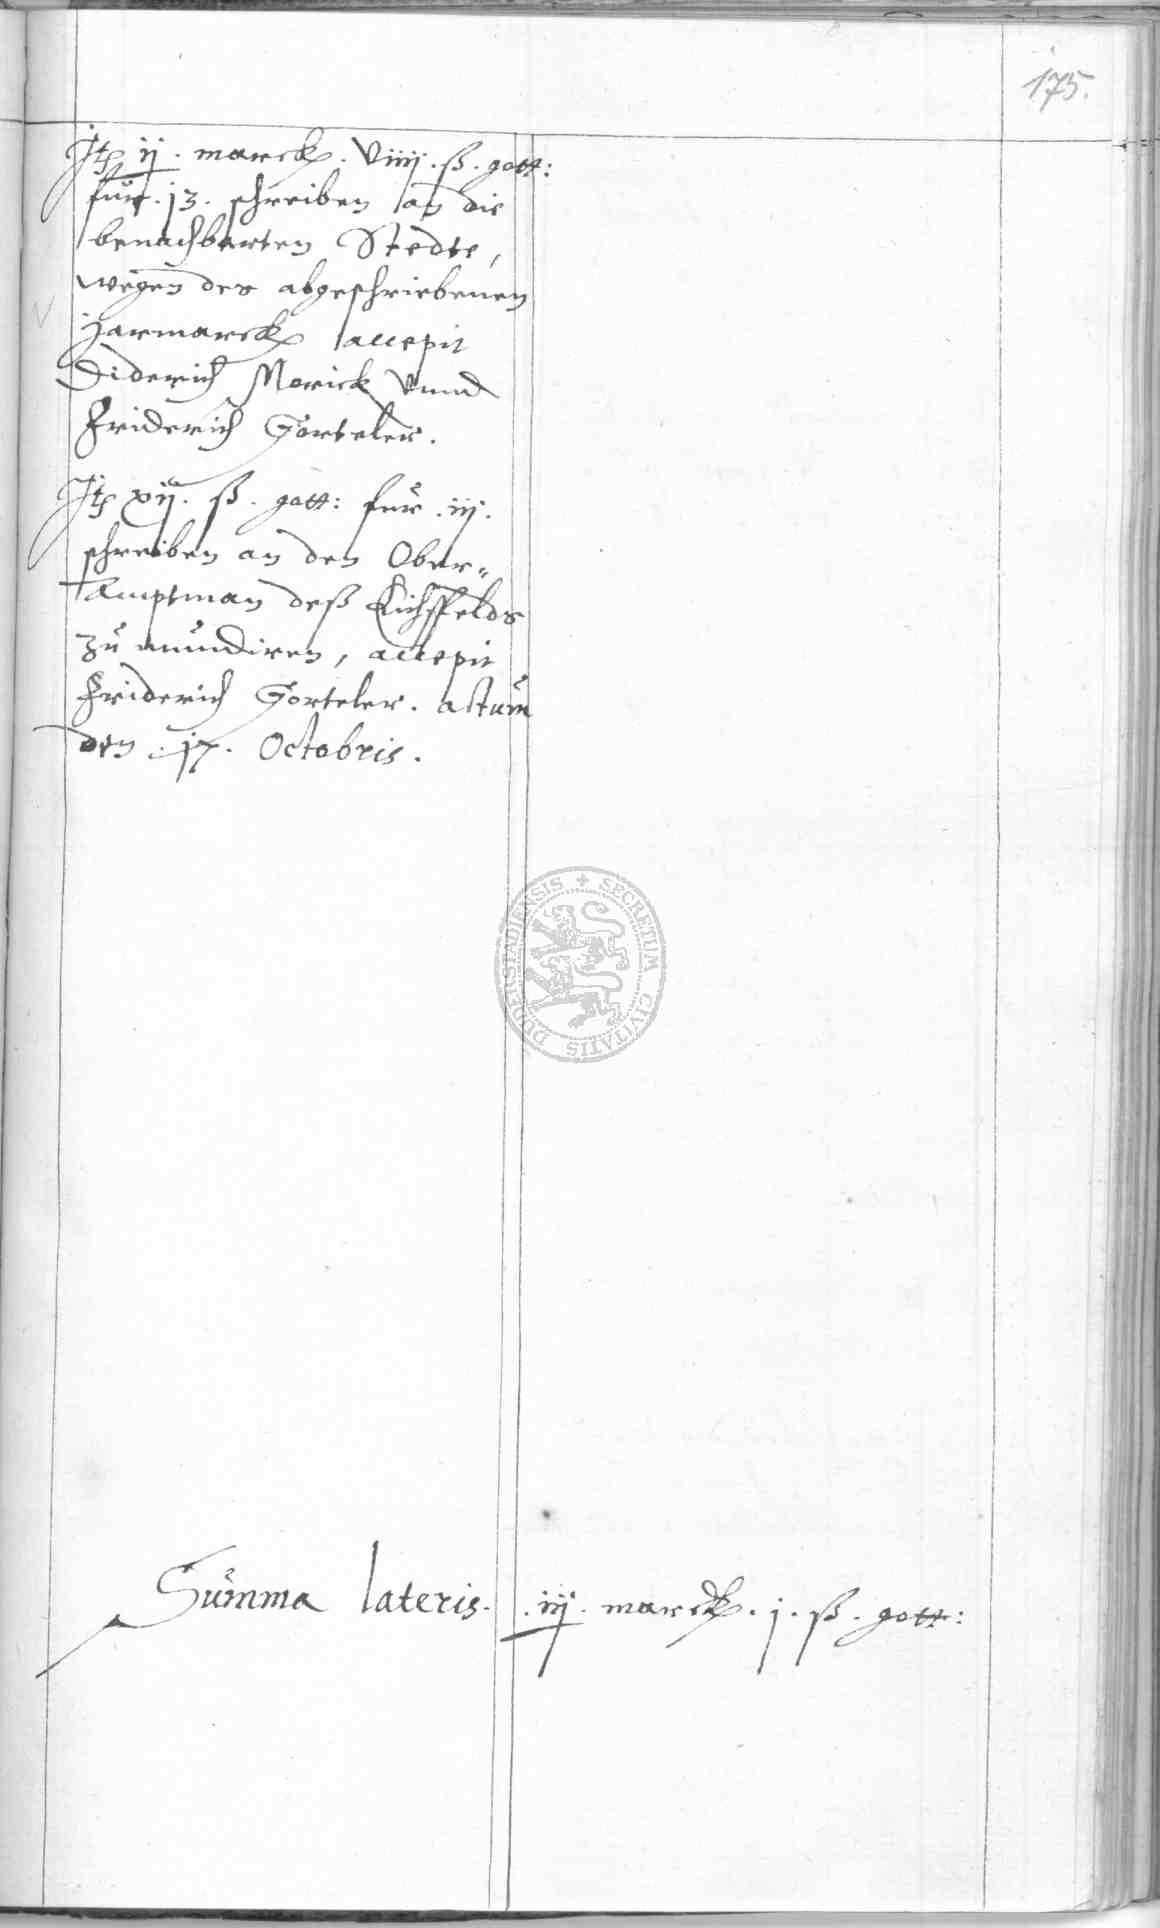 175.
Jtem ij. marck. viiij. ß. gott:
für. 13. schreiben an die
benachbarten Stedte,
wegen des abgeschriebenen
Jarmarck accepit
Diderich Morick vnnd
Friderich Gorteler.
Jtem xij. ß. gott: für. iij.
schreiben an den Ober-
Amptman deß Eichsfelds
zu mundiren, accepit
Friderich Gorteler. actum
den. 17. Octobris.
SECRETUM CIVITATIS DUDERSTADIENSIS
Summa lateris. iij. marck. j. ß. gott: